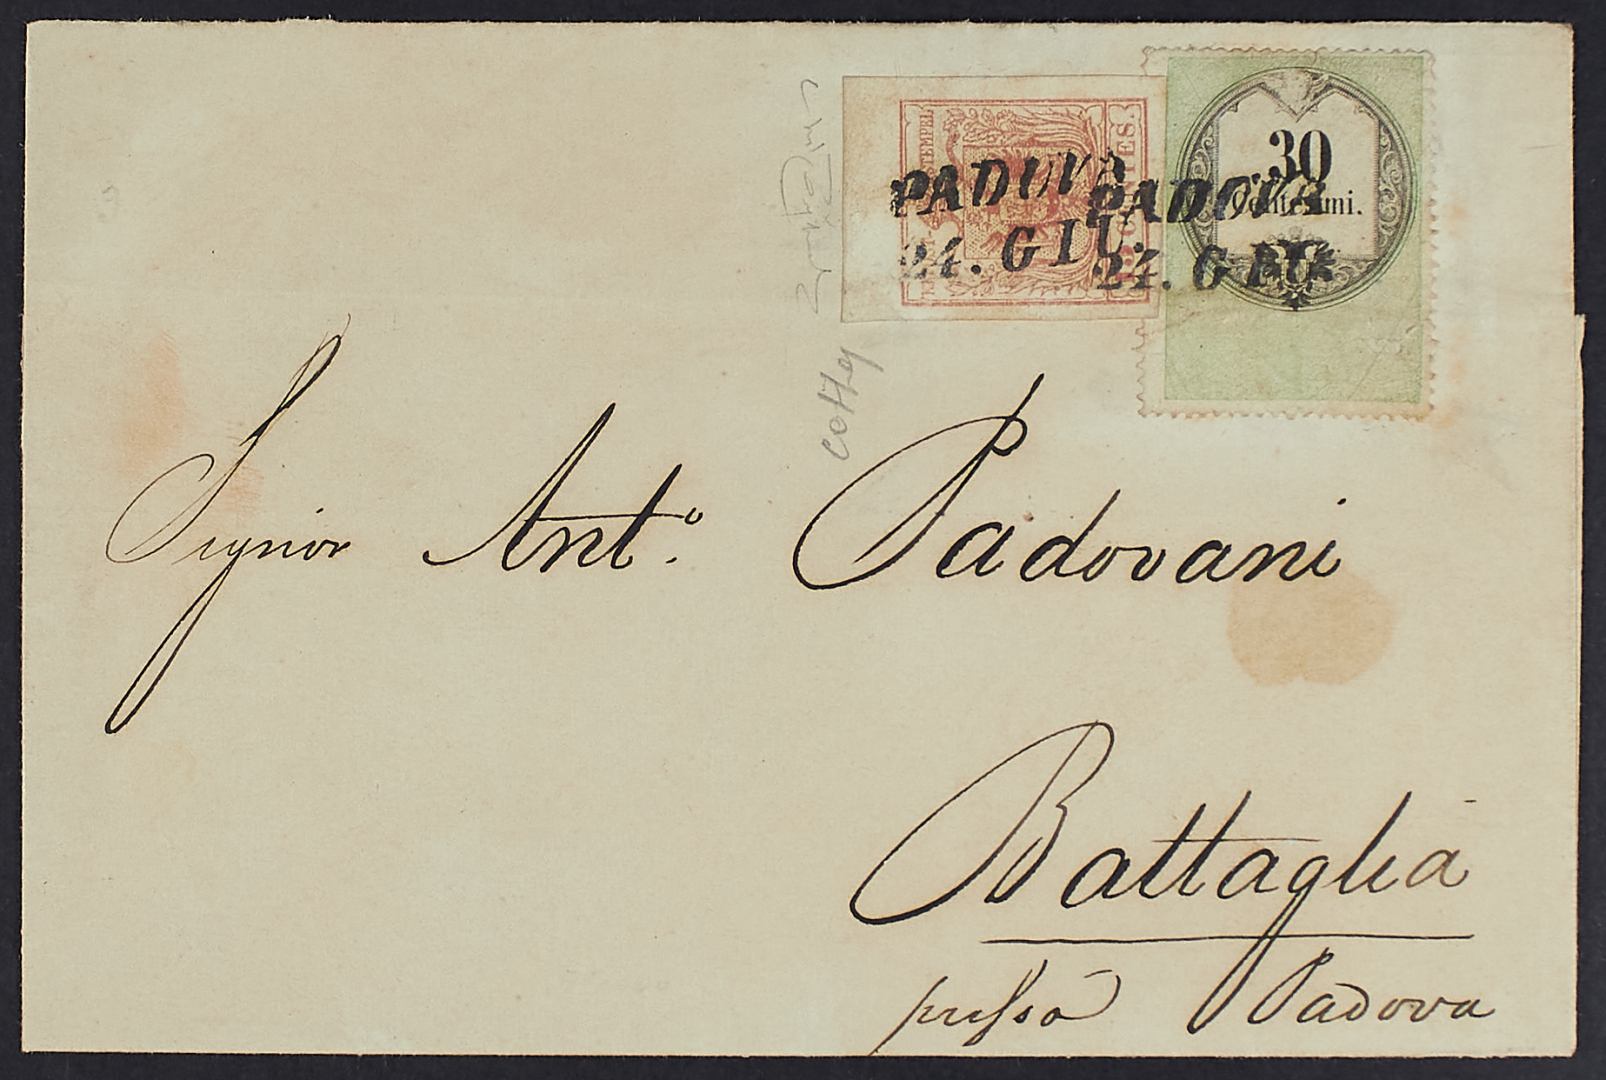 30
Centesimi.
STEMPEL
CENTES.
PADOVA
24. GIU.
PADOVA
24. GIU.
Signor Ant.º Padovani
Battaglia
presso Padova